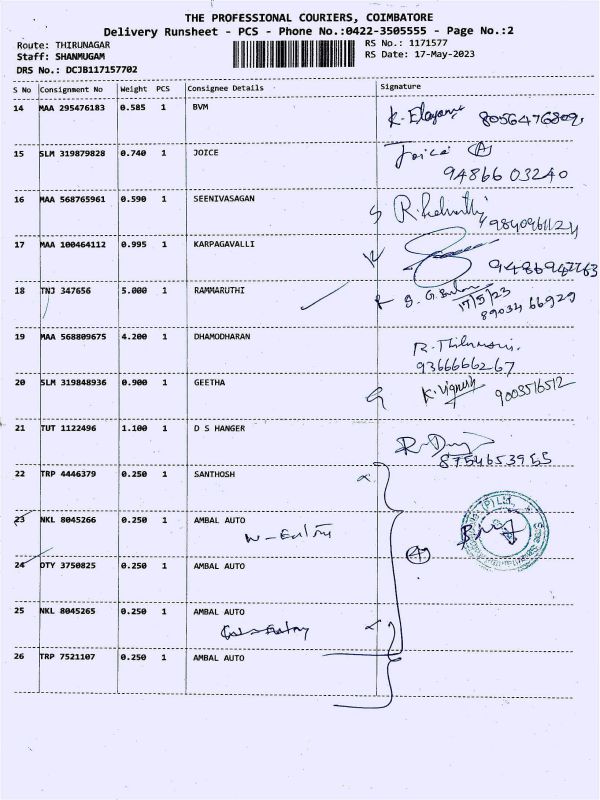 THE PROFESSIONAL COURIERS, COIMBATORE
Delivery Runsheet - PCS - Phone No.:0422-3505555 - Page No.:2
Route: THIRUNAGAR RS No.: 1171577
Staff: SHANMUGAM RS Date: 17-May-2023
DRS No.: DCJB117157702
S No Consignment No Weight PCS Consignee Details Signature
14 MAA 295476183 0.585 1 BVM
15 SLM 319879828 0.740 1 JOICE Joice
94866 03240
16 MAA 568765961 0.590 1 SEENIVASAGAN
17 MAA 100464112 0.995 1 KARPAGAVALLI
18 TNJ 347656 5.000 1 RAMMARUTHI
17/5/23
19 MAA 568809675 4.200 1 DHAMODHARAN
9366666267
20 SLM 319848936 0.900 1 GEETHA K. Vignesh 9003516512
21 TUT 1122496 1.100 1 D S HANGER
8754653955
22 TRP 4446379 0.250 1 SANTHOSH
23 NKL 8045266 0.250 1 AMBAL AUTO
4
24 DTY 3750825 0.250 1 AMBAL AUTO
25 NKL 8045265 0.250 1 AMBAL AUTO
26 TRP 7521107 0.250 1 AMBAL AUTO